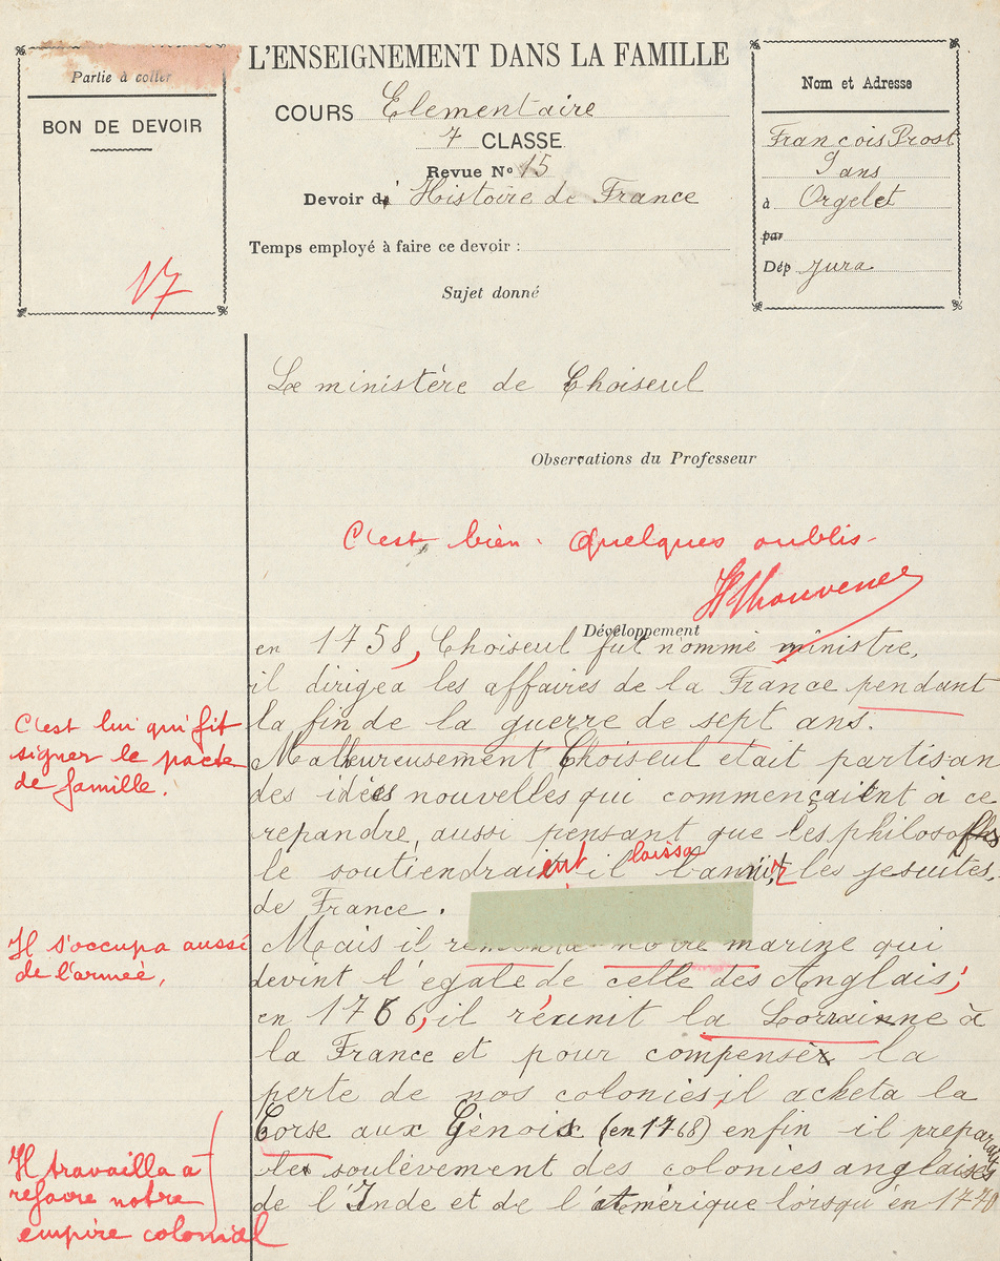 Partie à coller
BON DE DEVOIR
17
L'ENSEIGNEMENT DANS LA FAMILLE
COURS Elementaire
7 CLASSE
Revue N° 15
Devoir d' Histoire de France
Temps employé à faire ce devoir :
Sujet donné
Nom et Adresse
François Prost
9 ans
à Orgelet
par
Dép Jura
Le ministère de Choiseul
Observations du Professeur
C'est bien. Quelques oublis.
H. Thouvenez
Développement
en 1758, Choiseul fut nommé ministre,
il dirigea les affaires de la France pendant
la fin de la guerre de sept ans.
Malheureusement Choiseul etait partisan
des idées nouvelles qui commençaient à ce
repandre, aussi pensant que les philosophes
le soutiendraient il laissa bannir les jesuites,
de France.
Mais il remonta notre marine qui
devint l'égale de celle des Anglais;
en 1766, il réunit la Lorrainne à
la France et pour compenser la
perte de nos colonies, il acheta la
Corse aux Génois (en 1768) enfin il prepara
le soulèvement des colonies anglaises
de l'Inde et de l'Amérique lorsqu'en 1770
C'est lui qui fit
signer le pacte
de famille.
Il s'occupa aussi
de l'armée,
Il travailla à
refaire notre
empire colonial